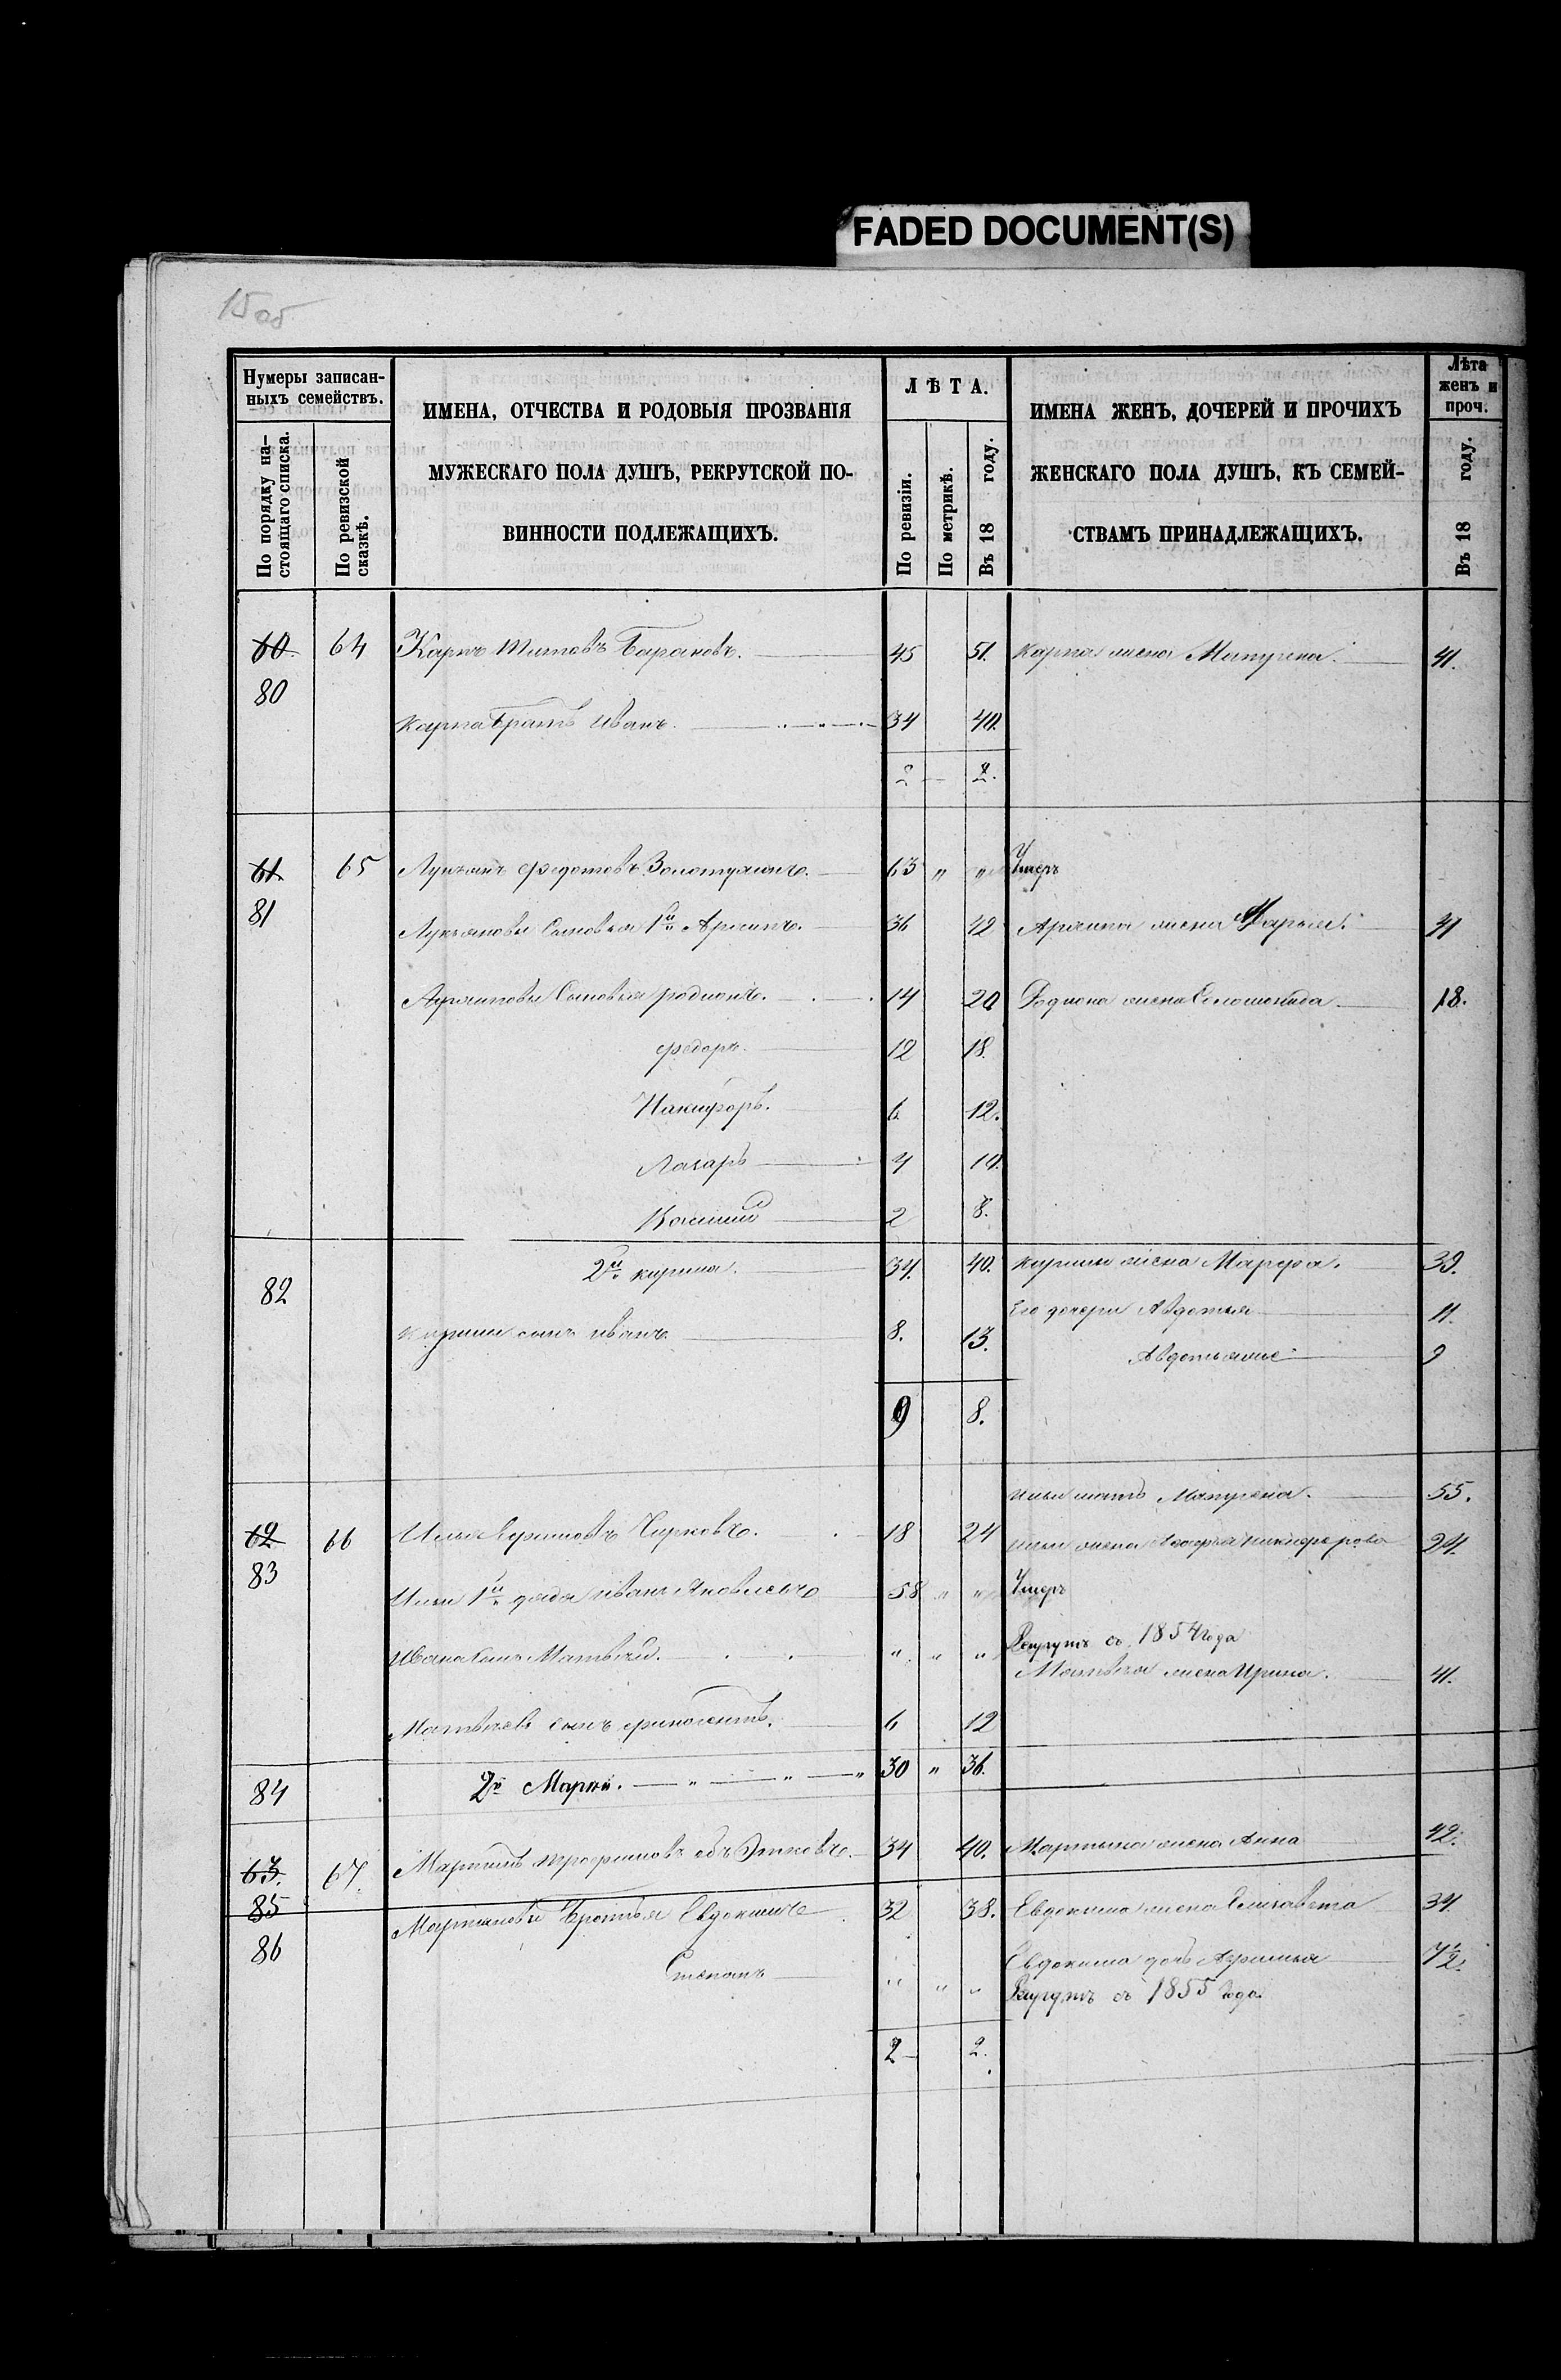 FADED DOCUMENT(S)
15 об
Нумеры записан-
ныхъ семействъ.
По порядку на-
стоящаго списка.
По ревизской
сказкѣ.
ИМЕНА, ОТЧЕСТВА И РОДОВЫЯ ПРОЗВАНІЯ
МУЖЕСКАГО ПОЛА ДУШЪ, РЕКРУТСКОЙ ПО-
ВИННОСТИ ПОДЛЕЖАЩИХЪ.
ЛѢТА.
По ревизіи.
По метрикѣ.
Въ 18 году.
ИМЕНА ЖЕНЪ, ДОЧЕРЕЙ И ПРОЧИХЪ
ЖЕНСКАГО ПОЛА ДУШЪ, КЪ СЕМЕЙ-
СТВАМЪ ПРИНАДЛЕЖАЩИХЪ.
Лѣта
женъ и
проч.
Въ 18 году.
60 64 Карпъ Титовъ Барановъ. 45 51. Карпа жена Матрена. 41.
80
Карпа братъ Иванъ. 34 40.
2 — 2.
61 65 Лукьянъ Федотовъ Золотухинъ. 63 " " Умеръ
81
Лукьяновы сыновья 1й Архипъ. 36 42 Архипа жена Марья. 41
Архиповы сыновья Родионъ. 14 20 Родиона жена Соломонида. 18.
Федоръ. 12 18.
Никифоръ. 6 12.
Лазарь 4 10.
2 8.
82 2й Кирила. 34. 40. Кирилы жена Марфа. 39.
Его дочери Авдотья 11.
Кирилы сынъ Иванъ 8. 13.
9
9 8.
Ильи мать Матрена. 55.
62 66 Илья Чирковъ. 18 24 Ильи жена Никифорова 24.
83
Ильи 1й дядя Иванъ Яковлевъ 58 " " Умеръ
Ивана сынъ Матвей. " " " Рекрутъ съ 1854 года
Матвея жена Ирина. 41.
Матвеевъ сынъ 6 12
84 2й Марки. — " — " — " 30 " 36.
63. 67. Мартынъ Трофимовъ 34 40. Мартына жена Анна 42.
85
Мартыновы братья Евдокимъ 32 38. Евдокима жена Елизавета 34
86
Евдокима дочь 7½.
Степанъ " " " Рекрутъ съ 1855 года.
2 — 2.